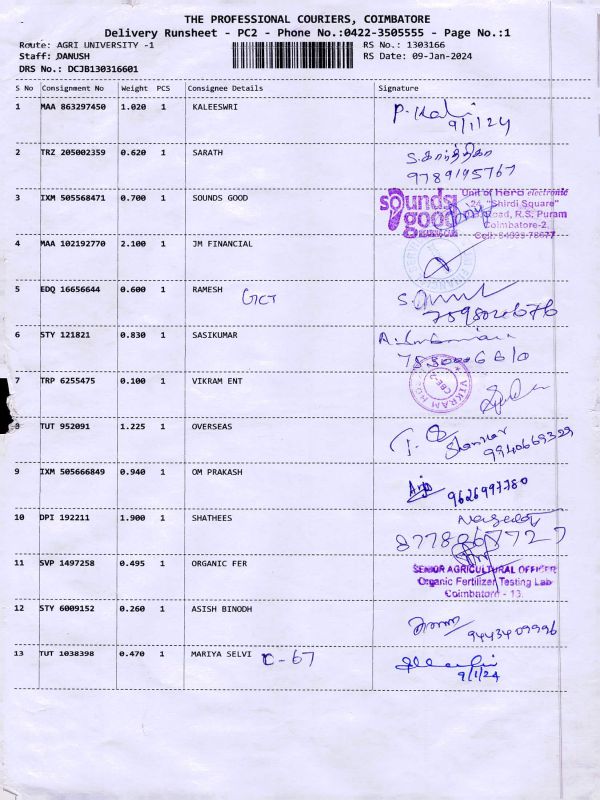 THE PROFESSIONAL COURIERS, COIMBATORE
Delivery Runsheet - PC2 - Phone No.:0422-3505555 - Page No.:1
Route: AGRI UNIVERSITY -1 RS No.: 1303166
Staff: DANUSH RS Date: 09-Jan-2024
DRS No.: DCJB130316601
S No Consignment No Weight PCS Consignee Details Signature
1 MAA 863297450 1.020 1 KALEESWRI
9/1/24
2 TRZ 205002359 0.620 1 SARATH
S.கார்த்திகா
9789195767
3 IXM 505568471 0.700 1 SOUNDS GOOD
sounds good
HEARING CARE
Unit of hero electronic
24, "Shirdi Square"
Road, R.S. Puram
Coimbatore-2.
4 MAA 102192770 2.100 1 JM FINANCIAL
5 EDQ 16656644 0.600 1 RAMESH GCT
6 STY 121821 0.830 1 SASIKUMAR
7 TRP 6255475 0.100 1 VIKRAM ENT
VIKRAM
CBE-2
8 TUT 952091 1.225 1 OVERSEAS
9940669329
9 IXM 505666849 0.940 1 OM PRAKASH
9626997780
10 DPI 192211 1.900 1 SHATHEES
11 SVP 1497258 0.495 1 ORGANIC FER
SENIOR AGRICULTURAL OFFICER
Organic Fertilizer Testing Lab
Coimbatore - 13.
12 STY 6009152 0.260 1 ASISH BINODH
9443409996
13 TUT 1038398 0.470 1 MARIYA SELVI C-67
9/1/24